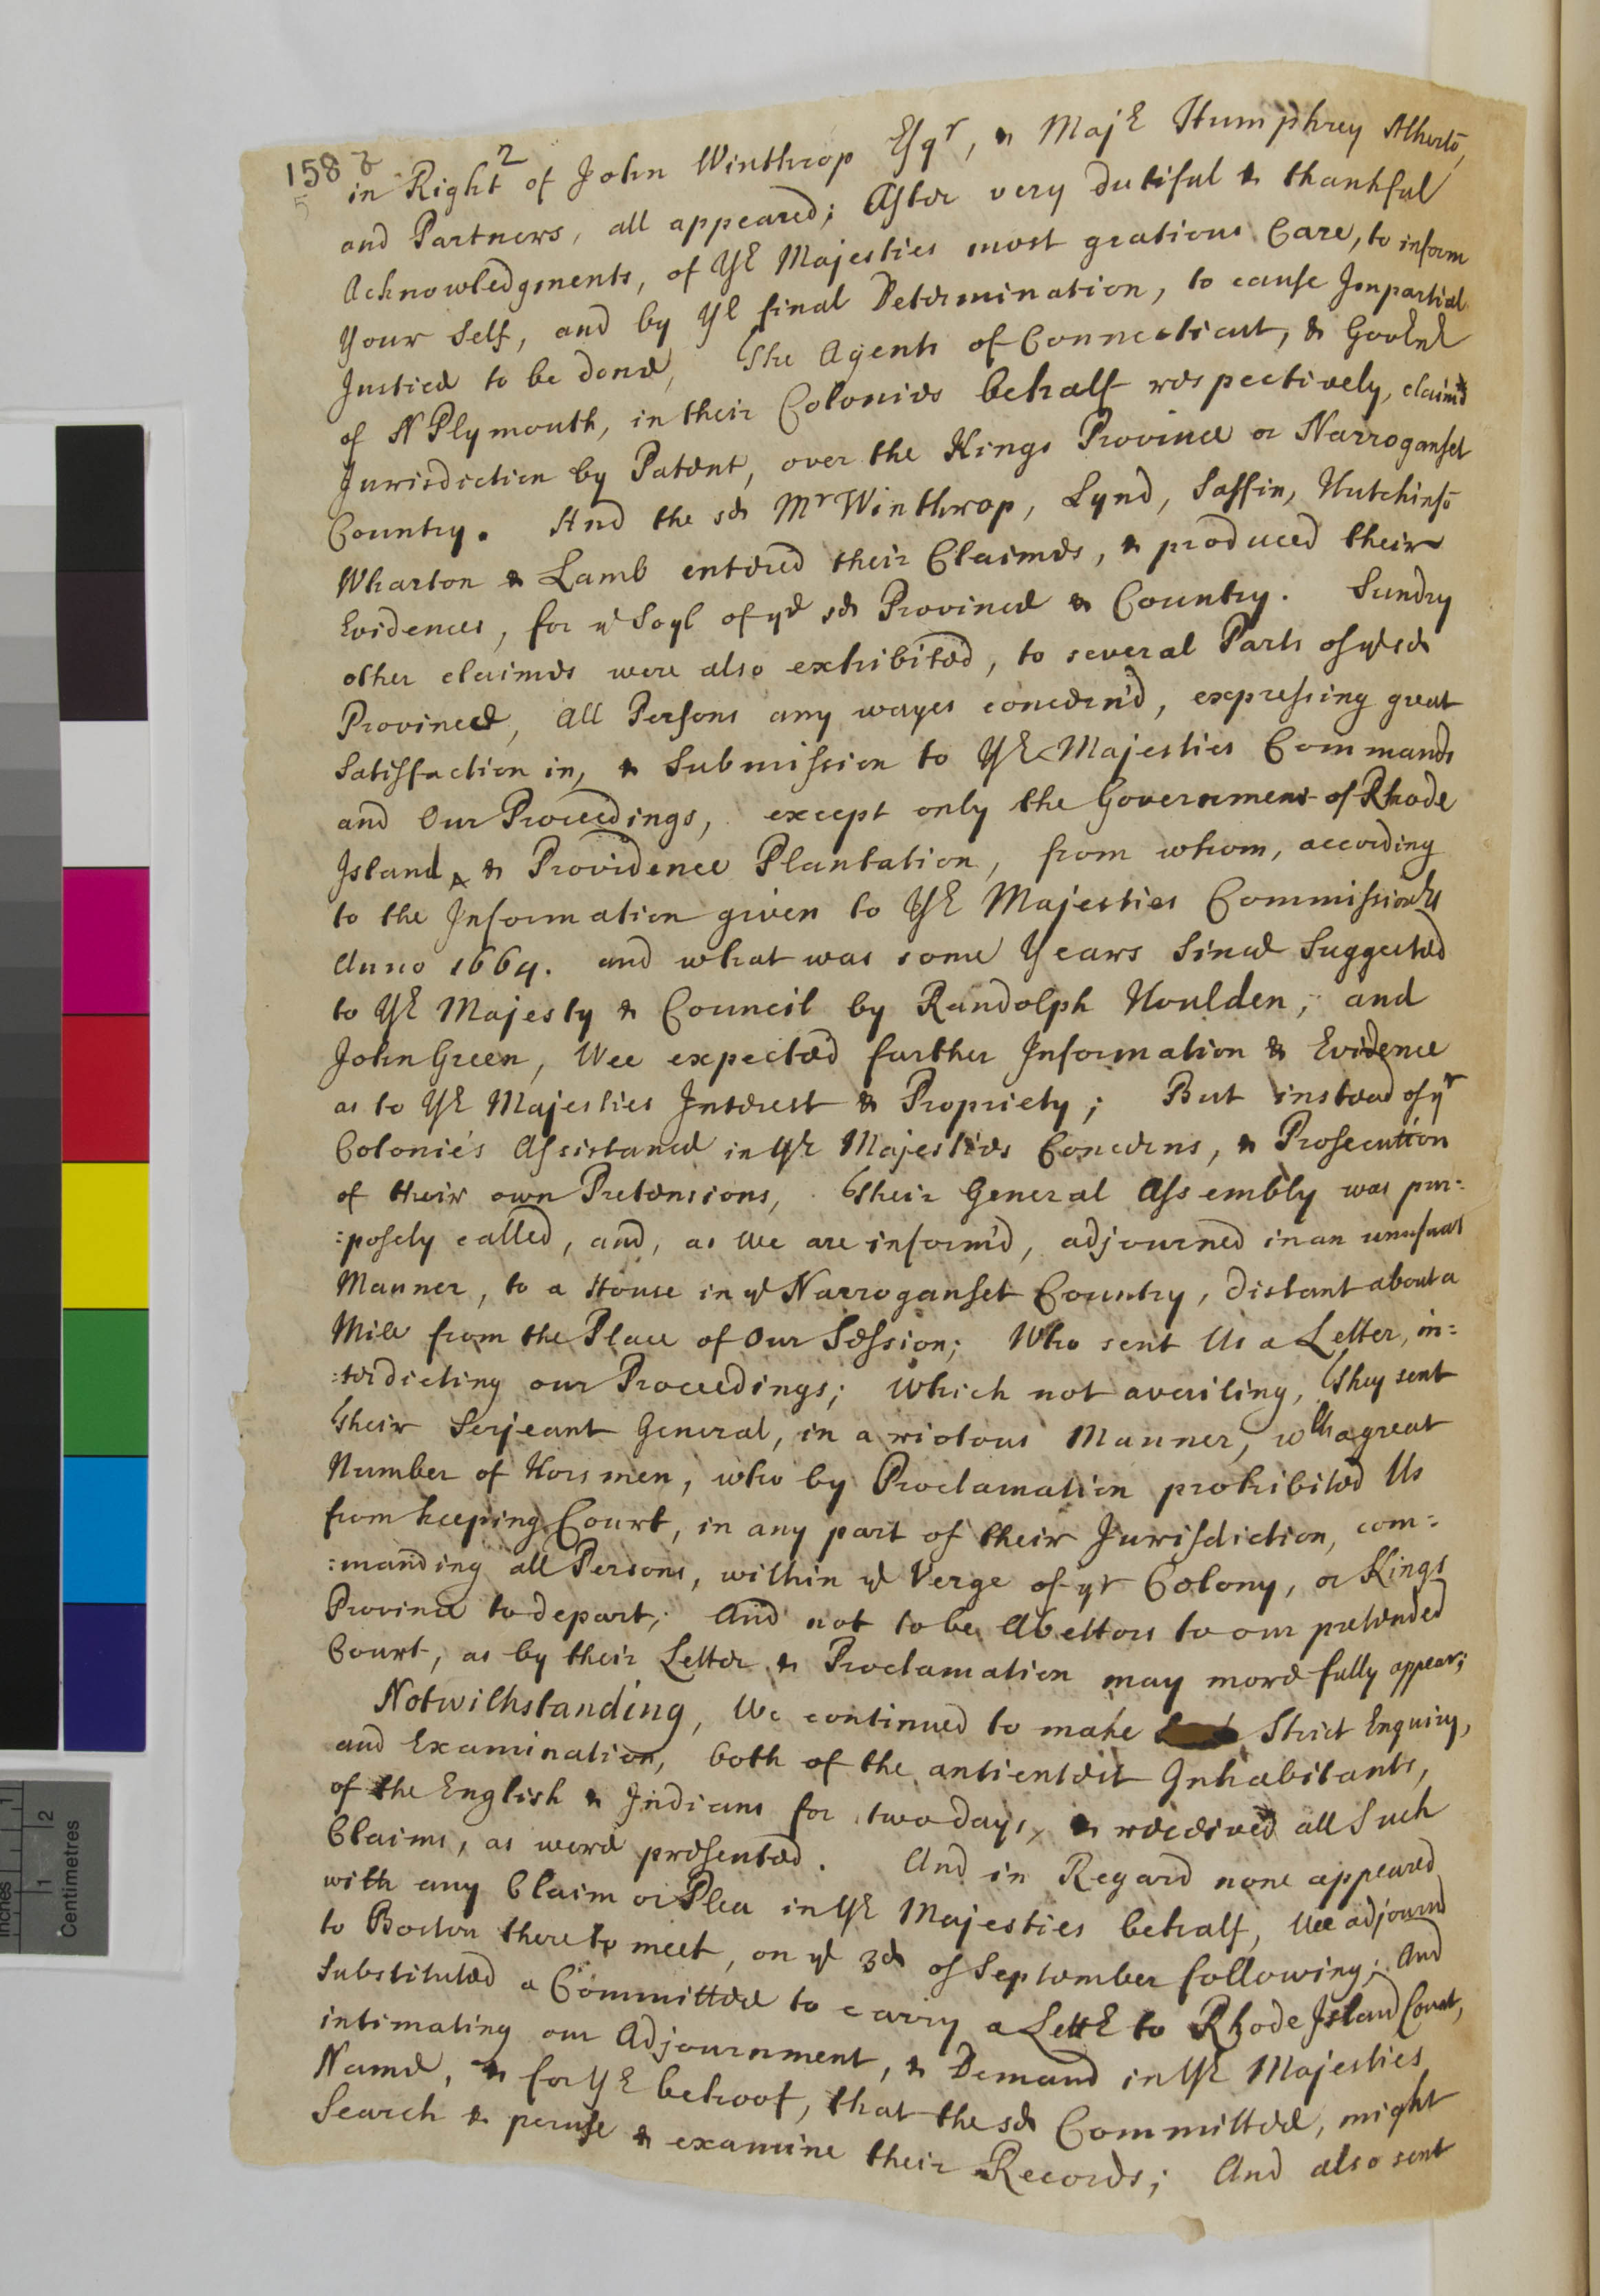 158 2
in Right of John Winthrop Esqr, & Majr Humphrey Athertō,
and Partners, all appeared; After very dutiful & thankful
Acknowledgments, of Yr Majesties most gratious Care, to inform
Your Self, and by Yr final Determination, to cause Impartial
Justice to be done, The Agents of Connecticut, & Govrnr
of N Plymouth, in their Colonies behalf respectively, claim'd
Jurisdiction by Patent, over the Kings Province or Narroganset
Country. And the sd Mr Winthrop, Lynd, Saffin, Hutchinsō
Wharton & Lamb entered their Claimes, & produced their
Evidences, for ye Soyl of ye sd Province & Country. Sundry
other claimes were also exhibited, to several Parts of ye sd
Province, All Persons any wayes concern'd, expressing great
Satisfaction in, & Submission to Yr Majesties Commands
and Our Proceedings, except only the Government of Rhode
Island & Providence Plantation, from whom, according
to the Information given to Yr Majesties Commissionrs
Anno 1664. and what was some Years Since Suggested
to Yr Majesty & Council by Randolph Houlden, and
John Green, Wee expected further Information & Evidence
as to Yr Majesties Interest & Propriety; But instead of yr
Colonie's Assistance in Yr Majesties Concerns, & Prosecution
of their own Pretensions, Their General Assembly was pur=
=posely called, and, as We are inform'd, adjourned in an unusual
Manner, to a House in ye Narroganset Country, distant about a
Mile from the Place of Our Session; Who sent Us a Letter, in=
=terdicting our Proceedings; Which not availing, They sent
Their Serjeant General, in a riotous Manner, wth a great
Number of Horsmen, who by Proclamation prohibited Us
from keeping Court, in any part of their Jurisdiction, com=
=manding all Persons, within ye Verge of yr Colony, or Kings
Province to depart; And not to be Abettors to our pretended
Court, as by their Letter & Proclamation may more fully appear;
Notwithstanding, We continued to make Strict Enquiry,
and Examination, both of the antientest Inhabitants,
of the English & Indians for two days, & received all Such
Claims, as were presented. And in Regard none appeared
with any Claim or Plea in Yr Majesties behalf, Wee adjournd
to Boston there to meet, on ye 3d of September following; And
Substituted a Committee to carry a Lettr to Rhode Island Court,
intimating our Adjournment, & Demand in Yr Majesties
Name, & for Yr behoof, that the sd Committee, might
Search & peruse & examine their Records; And also sent